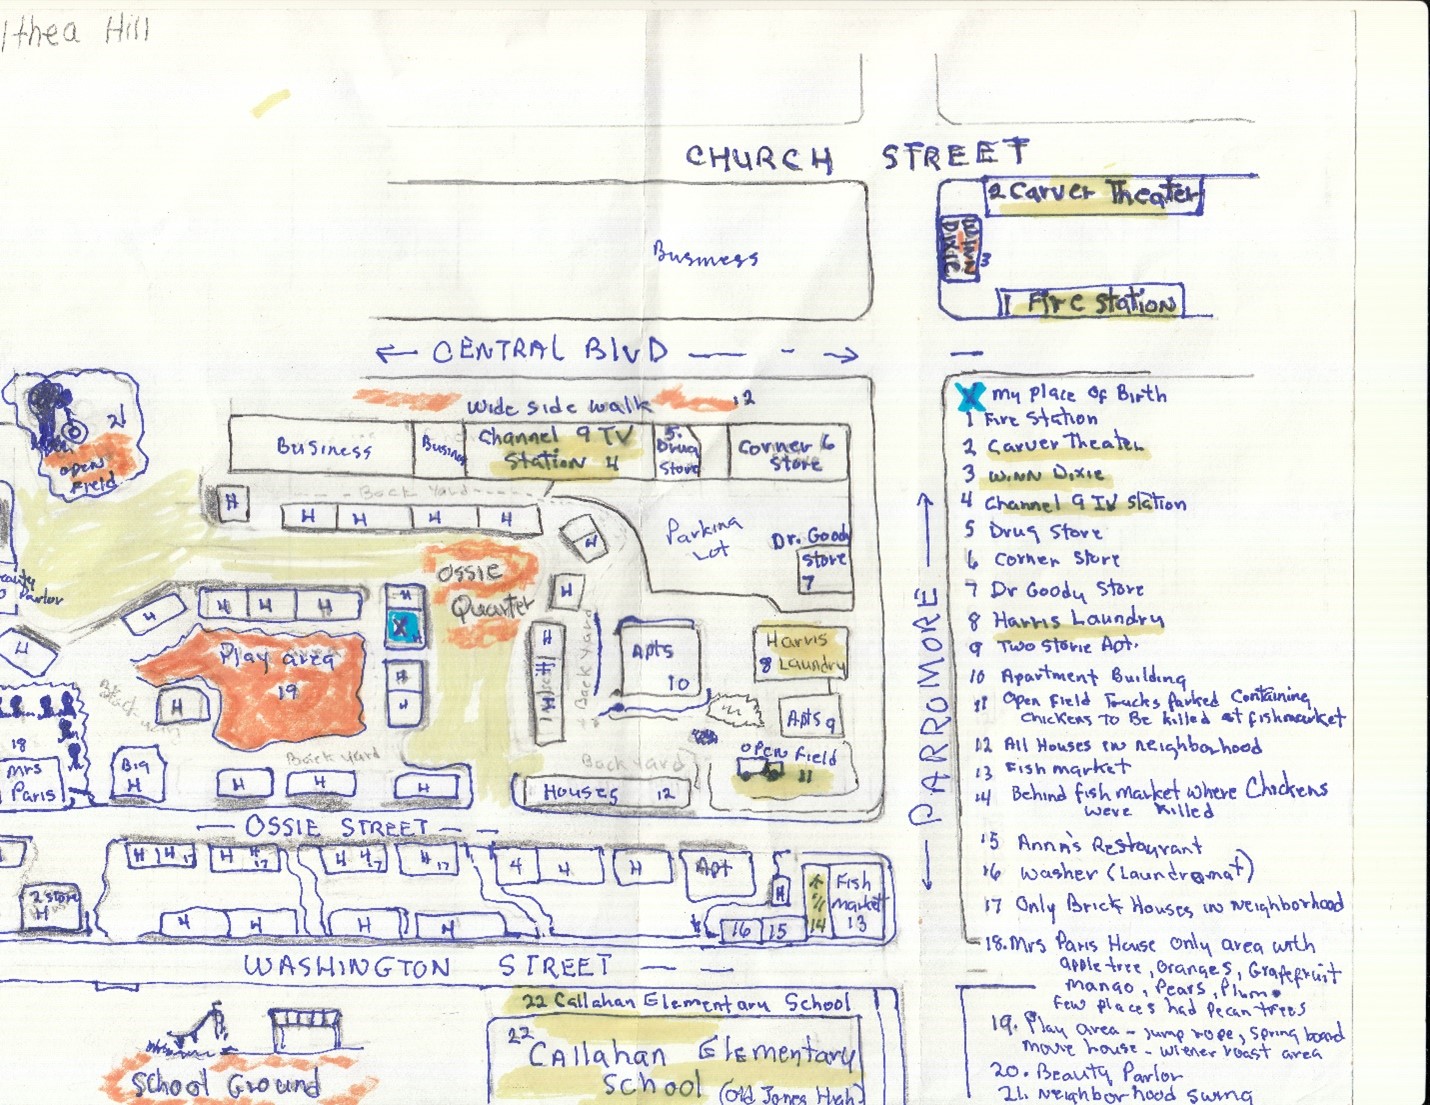 lthea Hill
CHURCH STREET
2 Carver Theater
WINN DIXIE
3
1 Fire Station
Business
← CENTRAL BLVD — - →
Wide side walk 12
Business
Business
Channel 9 TV
Station 4
5.
Drug
Store
Corner 6
Store
21
open
Field
H
Back Yard
H H H H
H
Parking
Lot
Dr. Good
Store
7
OSSIE
Quarter
H
H H H
H
H
X H
Play area
19
H
H
H
H
H
Back Yard
Apts
10
Harris
8 Laundry
Apts 9
open Field
11
Parlor
H
18
Mrs
Paris
H
Big
H
Back Yard
H
H
H
Back Yard
Houses 12
← OSSIE STREET —
H H 17
H H 17
H H 17
H 17
4 H
H
Apt
H
14
Fish
market
13
2 Store
H
H H
H
H
16 15
WASHINGTON STREET
School Ground
22 Callahan Elementary School
22
Callahan Elementary
School (Old Jones High)
← PARROMORE →
X My Place Of Birth
1 Fire Station
2 Carver Theater
3 WINN Dixie
4 Channel 9 TV Station
5 Drug Store
6 Corner Store
7 Dr Goody Store
8 Harris Laundry
9 Two Storie Apt.
10 Apartment Building
11 Open Field Trucks Parked Containing
chickens To Be killed at fishmarket
12 All Houses in neighborhood
13 Fish market
14 Behind fish market where Chickens
were killed
15 Annn's Restaurant
16 Washer (Laundromat)
17 Only Brick Houses in neighborhood
18. Mrs Paris House Only area with
apple tree, oranges, Grapefruit
mango, Pears, Plum.
Few places had Pecan trees
19. Play area - Jump rope, Spring board
movie house - wiener roast area
20. Beauty Parlor
21. Neighborhood Swing